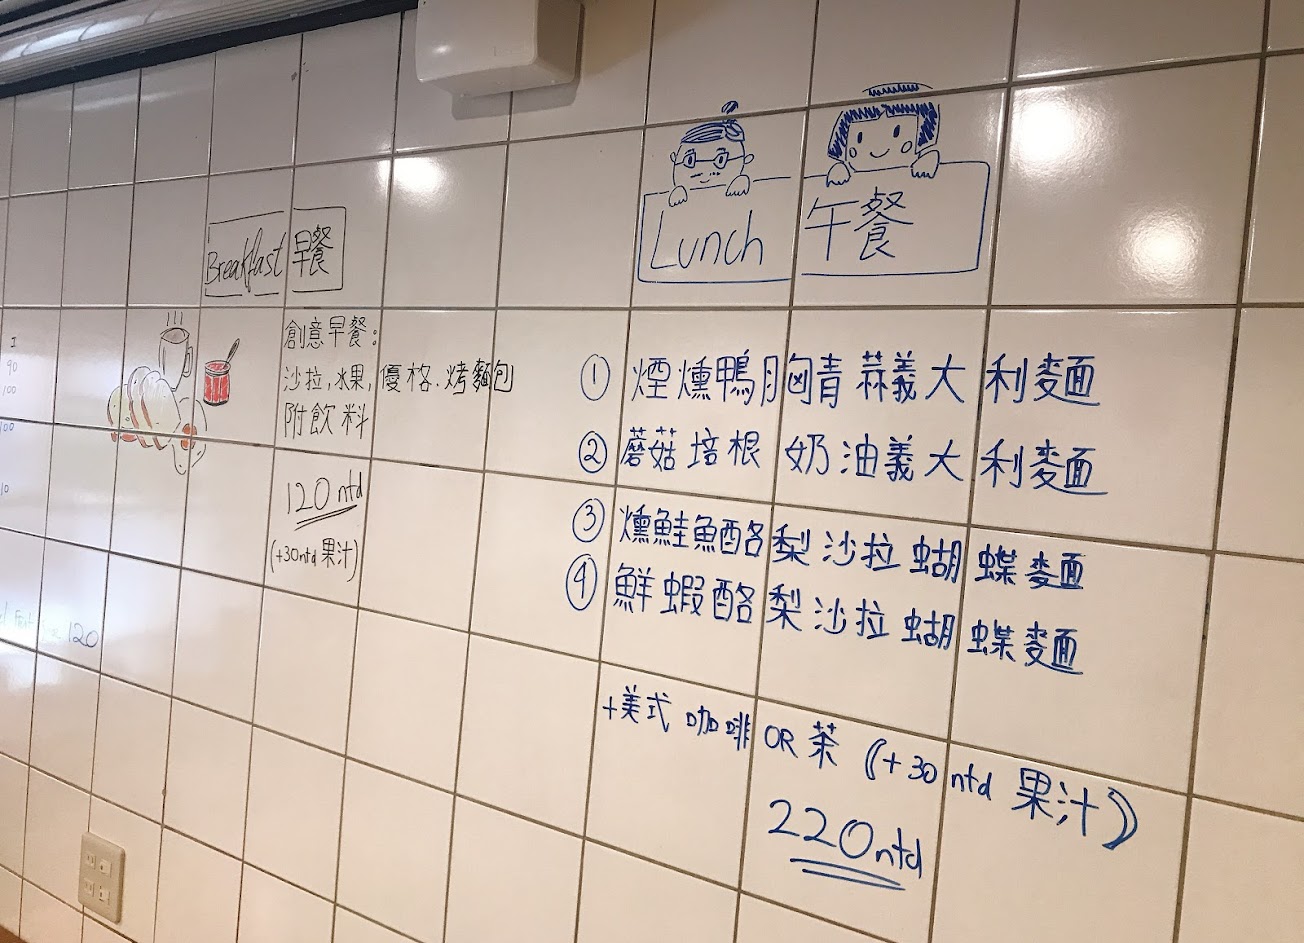 Breakfast 早餐
創意早餐:
沙拉,水果,優格.烤麵包
附飲料
120 ntd
(+30ntd 果汁)
I
90
100
100
10
120
Lunch 午餐
① 煙燻鴨胸青蒜義大利麵
② 蘑菇培根奶油義大利麵
③ 燻鮭魚酪梨沙拉蝴蝶麵
④ 鮮蝦酪梨沙拉蝴蝶麵
+美式咖啡 OR 茶 (+30 ntd 果汁)
220ntd